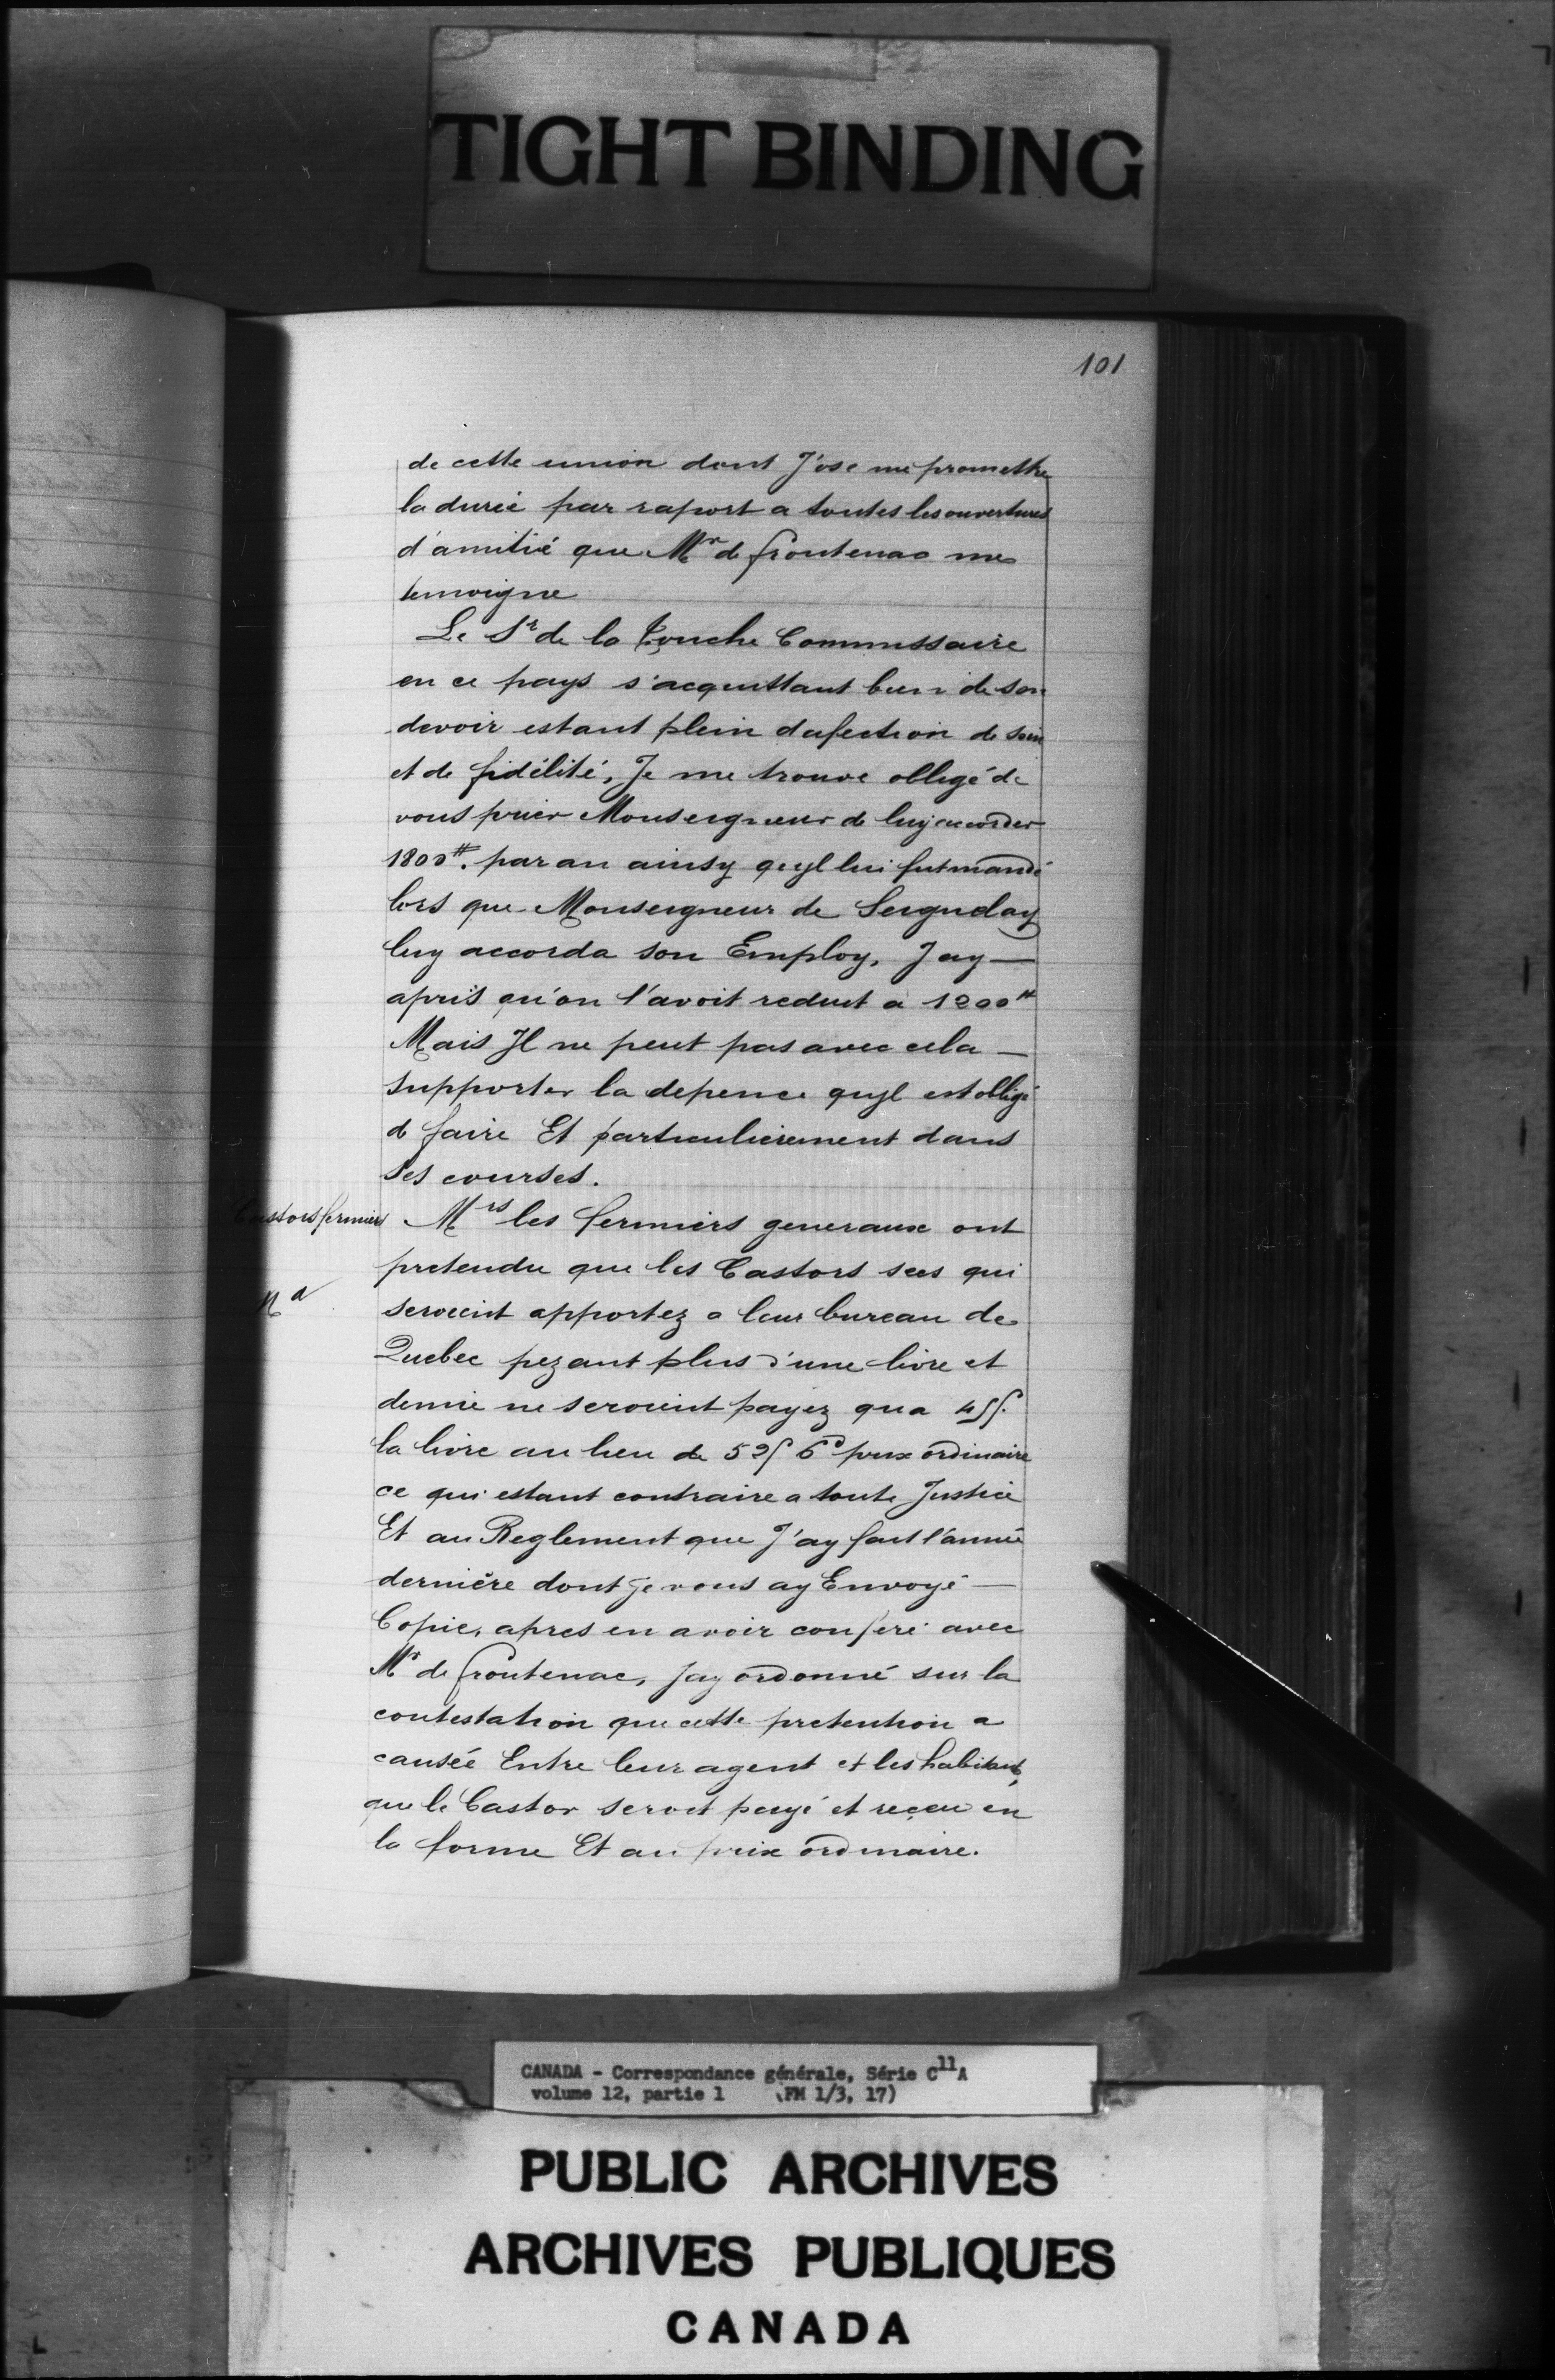 TIGHT BINDING
101
de cette union dont J'ose me promettre
la dureé par raport a toutes les ouvertures
d'amitié que Mr de frontenac me
temoigne
Le Sr de la Touche Commissaire
en ce pays s'acquittant bien de son
devoir estant plein dafection de soin
et de fidélité, Je me trouve obligé de
vous prier Monseigneur de luy accorder
1800₶. par an ainsy qu'yl lui fut mandé
lors que Monseigneur de Seignelay
luy accorda son Employ, Jay —
apris qu'on l'avoit reduit a 1200₶
Mais Il ne peut pas avec cela —
supporter la depence quyl est obligé
de faire Et particulierement dans
ses courses.
Castors fermiers
Mrs les fermiers generaux ont
pretendu que les Castors secs qui
Na
seroient apportez a leur bureau de
Quebec pezant plus d'une livre et
demie ne seroient payez qu'a 4ss.
la livre au lieu de 52s 6d prix ordinaire
ce qui estant contraire a toute Justice
Et au Reglement que J'ay fait l'année
dernière dont je vous ay Envoyé —
Copie, apres en avoir conferé avec
Mr de frontenac, Jay ordonné sur la
contestation que cette pretention a
causée Entre leur agent et les habitants,
que le Castor seroit payé et reçeu en
la forme Et au prix ordinaire.
CANADA - Correspondance générale, Série C11A
volume 12, partie 1 (FM 1/3, 17)
PUBLIC ARCHIVES
ARCHIVES PUBLIQUES
CANADA